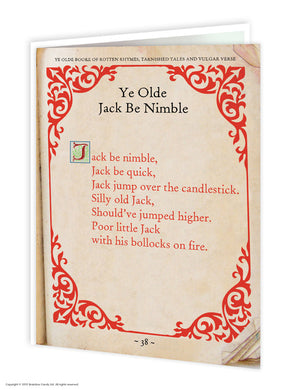 YE OLDE BOOKS OF ROTTEN RHYMES, TARNISHED TALES AND VULGAR VERSE
Ye Olde
Jack Be Nimble
Jack be nimble,
Jack be quick,
Jack jump over the candlestick.
Silly old Jack,
Should've jumped higher.
Poor little Jack
with his bollocks on fire.
~ 38 ~